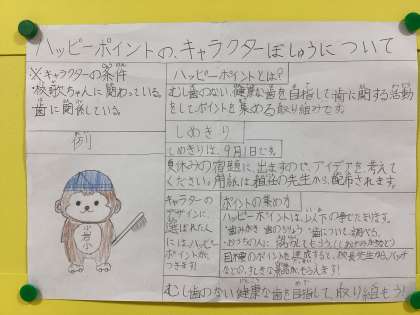 ハッピーポイントの、キャラクターぼしゅうについて
※キャラクターの条件
校歌ちゃんに関わっている。
歯に関係している。
例
小岩小
ハッピーポイントとは?
むし歯のない、健康な歯を目指して歯に関する活動
をしてポイントを集める取り組みです。
しめきり
しめきりは、9月1日です。
夏休みの宿題に、出ますので、アイデアを考えて
ください。用紙は、担任の先生から、配布されます。
キャラクターの
デザインに、
選ばれた人
にはハッピー
ポイントが、
つきます!
ポイントの集め方
ハッピーポイントは、以下の事でたまります。
・歯みがき
・歯について、調べる。
・おうちの人に
目標のポイントを達成すると、校長先生から、バッヂ
などの、すてきな
がもらえます!
むし歯のない健康な歯を目指して、取り組もう!